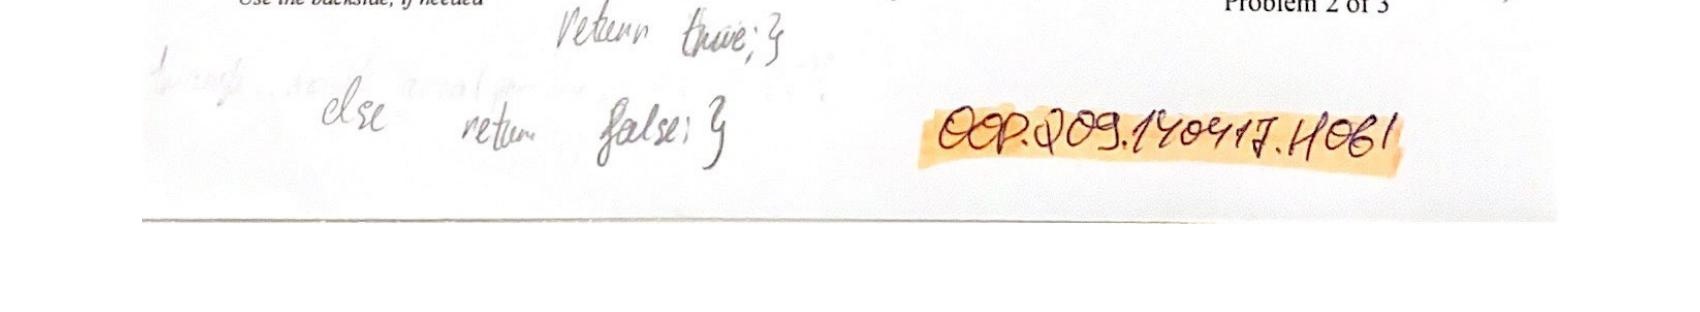 Use the backside, if needed
Problem 2 of 3
return true; }
else return false; }
OOP.Q09.140417.H061